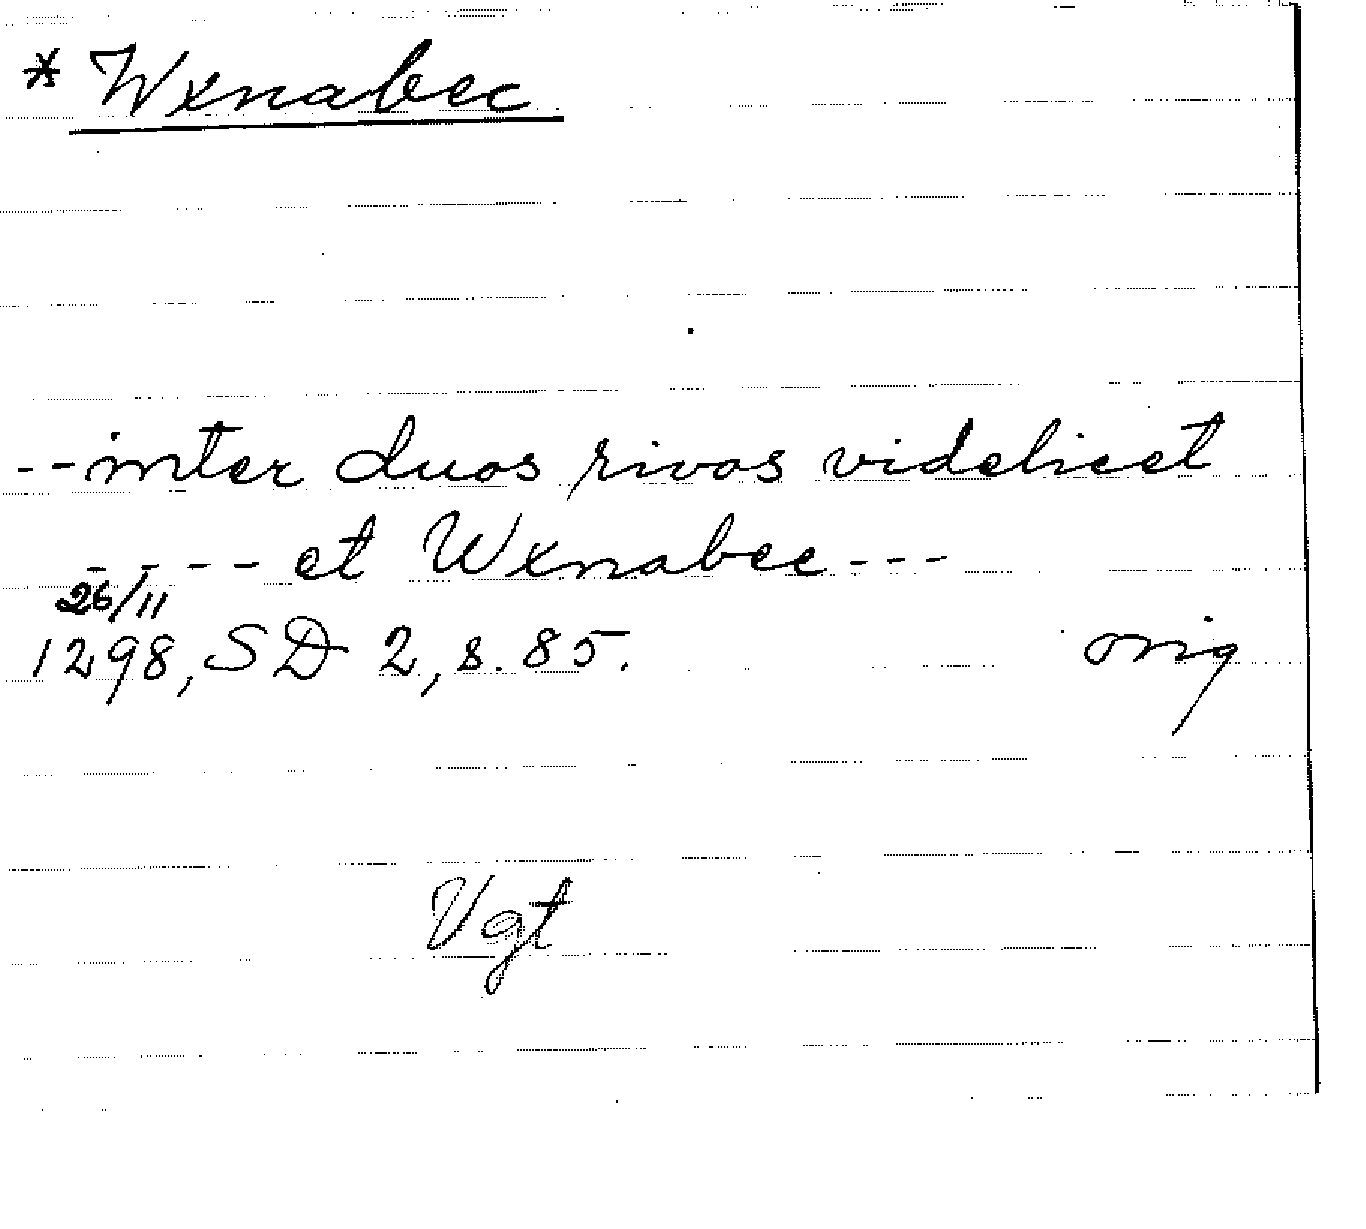 * Wxnabec
--inter duos rivos videlicet
---- et Wxnabec---
26/11
1298, SD 2, s. 85. orig
Vgt